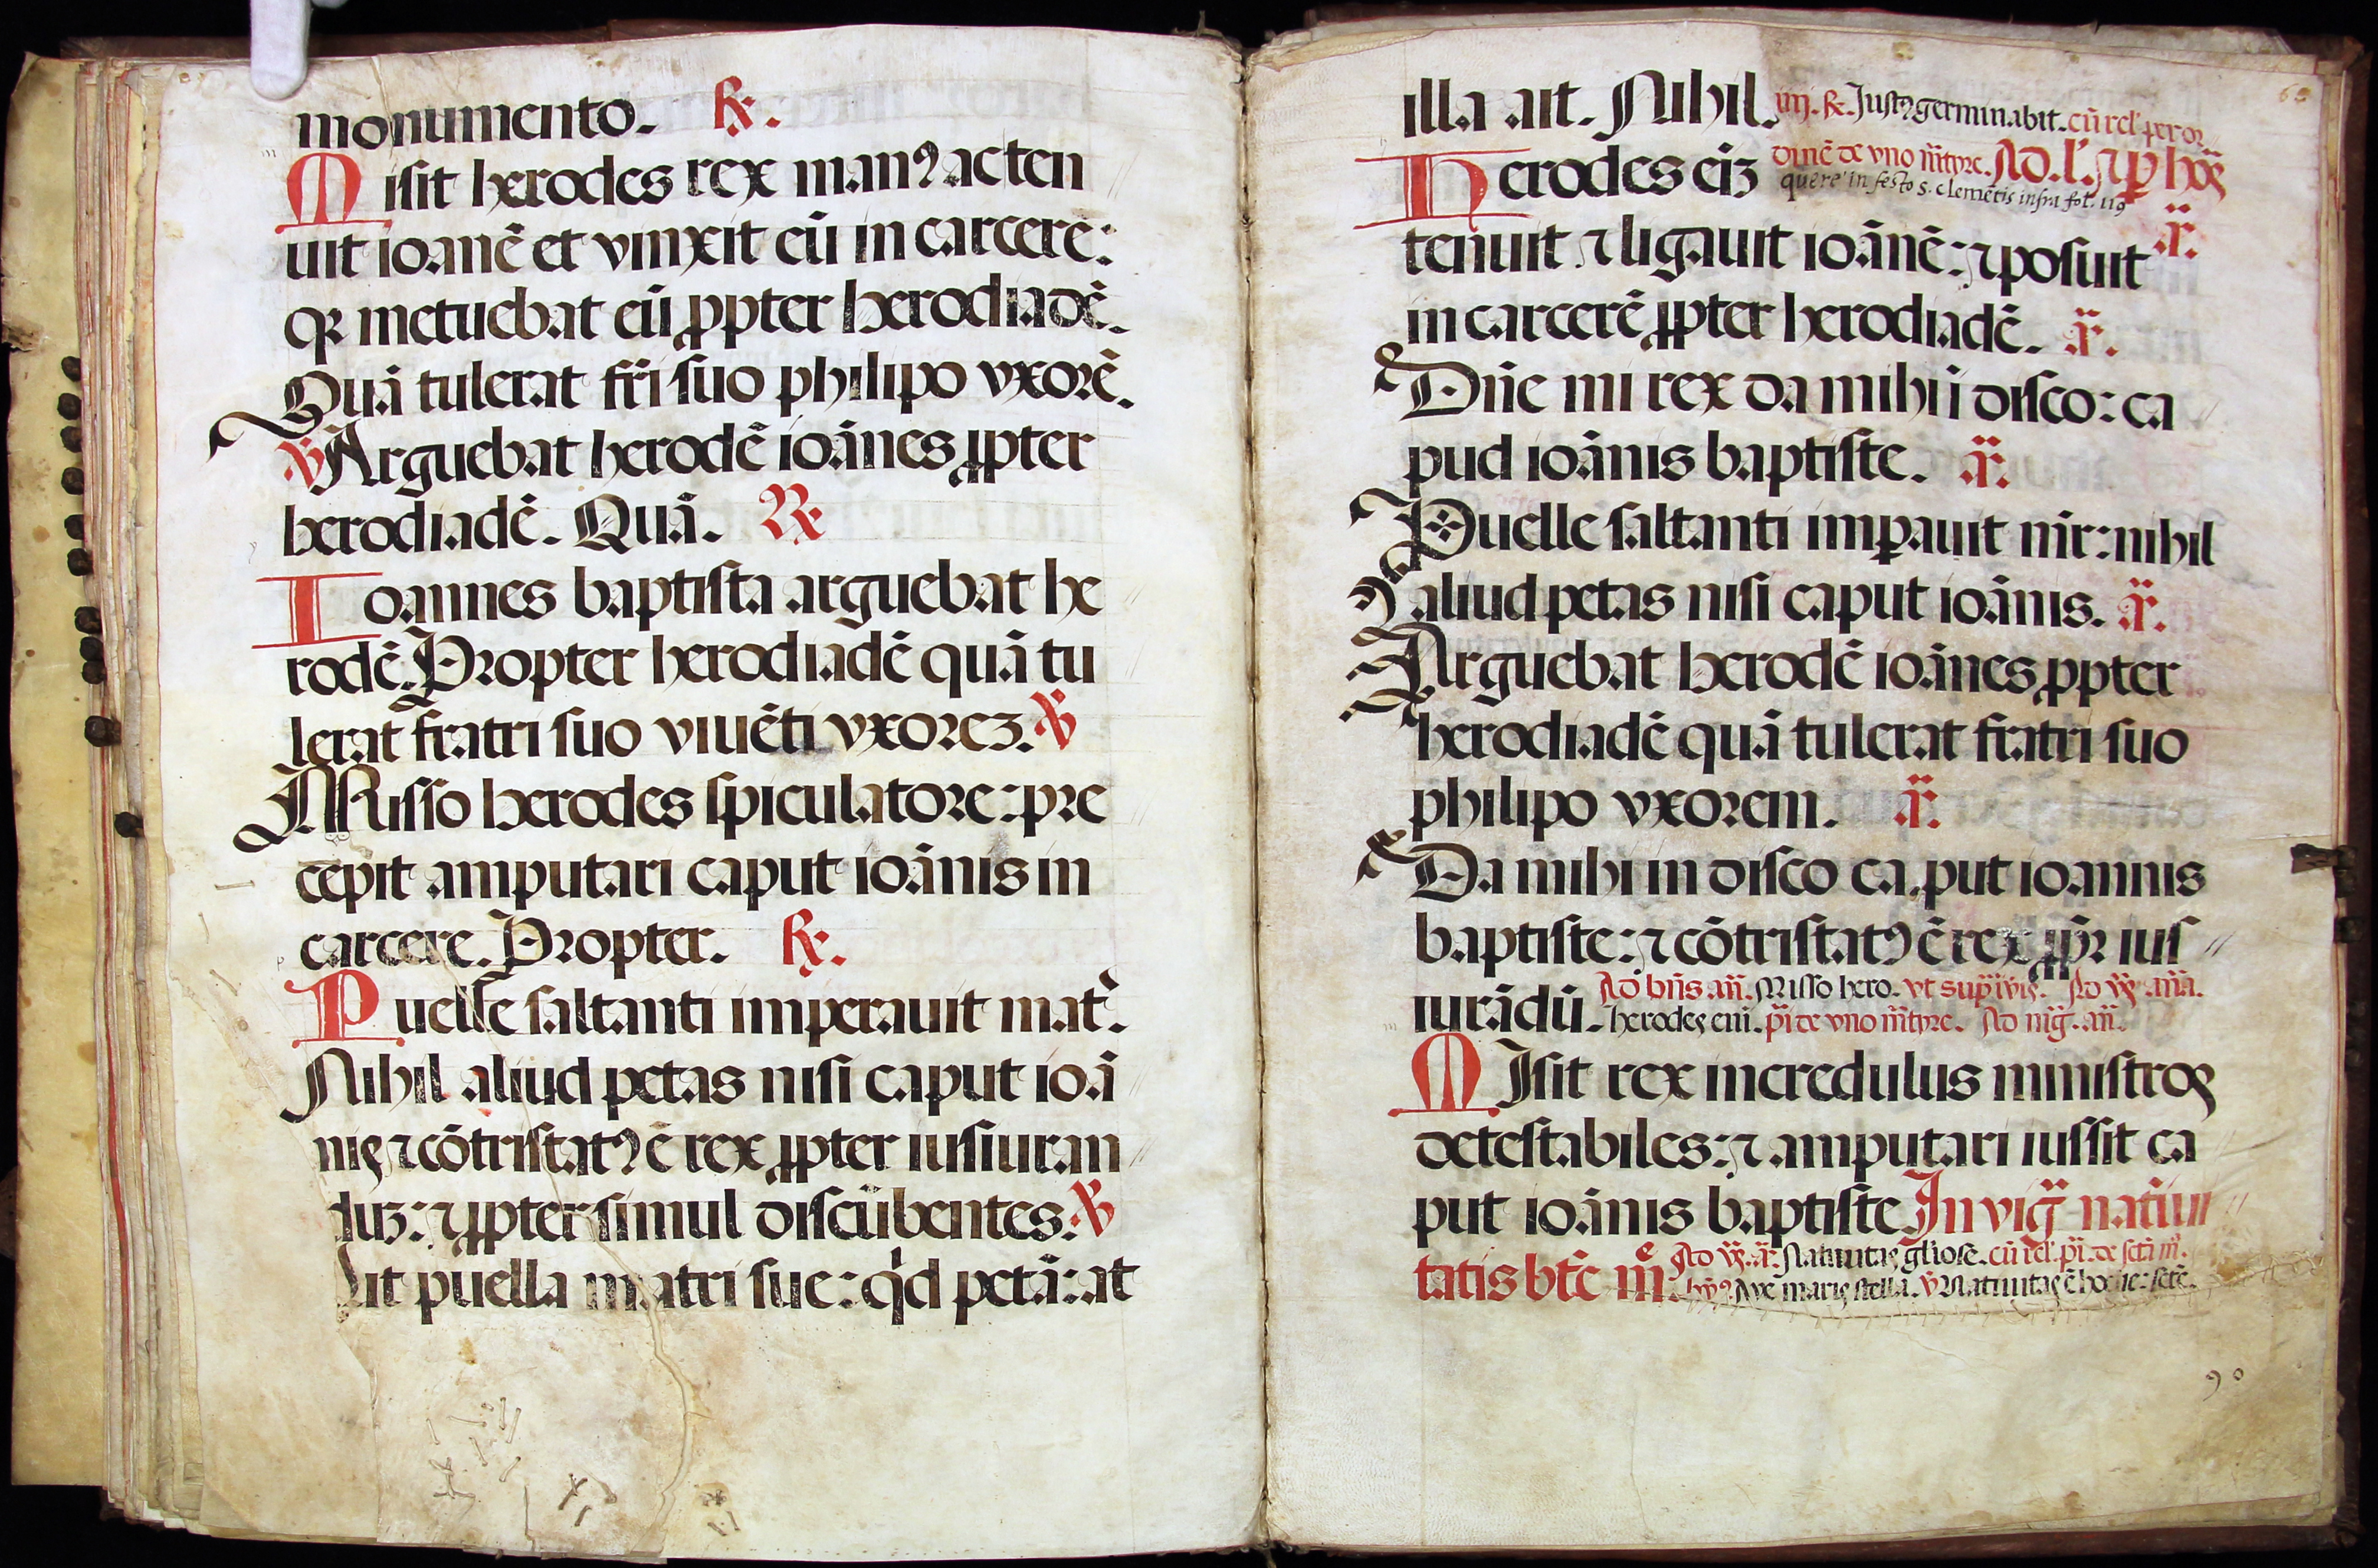 monumento. ℟.
Misit herodes rex manꝰ ac ten
uit ioanē et vinxit eū in carcere:
qꝛ metuebat eū ꝓpter herodiadē.
Quā tulerat fr̄i suo philipo vxorē.
℣ Arguebat herodē ioānes ꝓpter
herodiadē. Quā. ℟
Ioannes baptista arguebat he
rodē. Propter herodiadē quā tu
lerat fratri suo viuēti vxoreꝫ. ℣
Misso herodes spiculatore: pre
cepit amputari caput ioānis in
carcere. Propter. ℟.
Puelle saltanti imperauit mat̄.
Nihil aliud petas nisi caput ioā
nis ⁊ cōtristatꝰ ē rex ꝓpter iusiuran
duꝫ: ⁊ ꝓpter simul discūbentes. ℣
Ait puella matri sue: qd̓ petā: at
illa ait. Nihil. iij. ℟. Justꝰ germinabit. cū rel' per or
dinē de vno m̄tyre. Ad. l'. ⁊ p hōs
Herodes eīꝫ
quere in festo s. clemētis infra fol. 119
tenuit ⁊ ligauit ioānē: ⁊ posuit ā.
in carcerē ꝓpter herodiadē. ā.
Dn̄e mi rex da mihi ī disco: ca
pud ioānis baptiste. ā.
Puelle saltanti imꝑauit mr̄: nihil
aliud petas nisi caput ioānis. ā.
Arguebat herodē ioānes ꝓpter
herodiadē quā tulerat fratri suo
philipo vxorem. ā.
Da mihi in disco caput ioannis
baptiste: ⁊ cōtristatꝰ ē rex ꝓpꝛ ius
Ad bn̄s an̄. Misso hero. vt sup̄ Ad vs̄ an̄a.
iurādū. herodes eni. ps̄ de vno m̄tyre. Ad mḡ. an̄.
MIsit rex incredulus ministros
detestabiles: ⁊ amputari iussit ca
put ioānis baptiste In viḡ natiui
tatis bt̄e me. Ad vs̄. ā. Natiuitas gl̄iose. cū rel' ps̄. de sctā m̄.
hyꝰ Aue maris stella. ℣ Natiuitas ē hodie: scte.
90